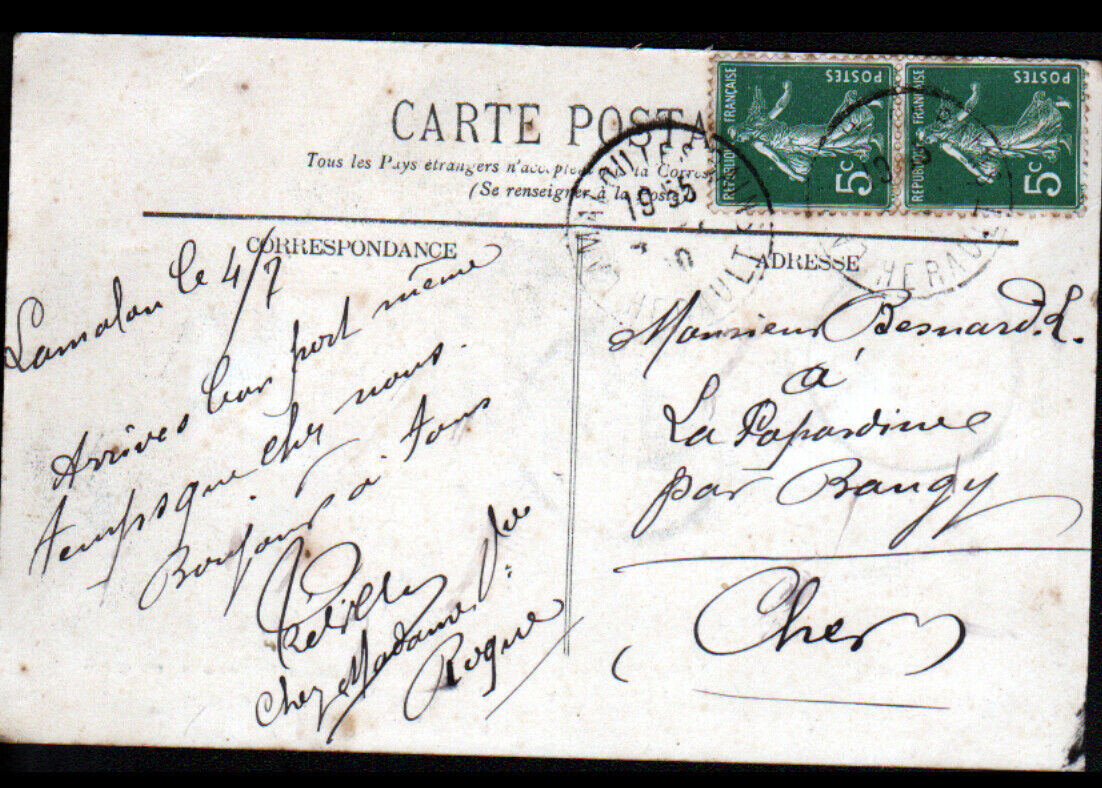 CARTE POSTA
Tous les Pays étrangers n'acceptent la Corres
(Se renseigner à la Poste)
RÉPUBLIQUE FRANÇAISE
POSTES
5c
RÉPUBLIQUE FRANÇAISE
POSTES
5c
19 35
HERAULT
HERAULT
CORRESPONDANCE
Lamalou le 4/7
Arrivés bon port même
temps que chez nous.
Bonjour à tous
chez Madame Vve
Roque
ADRESSE
Monsieur Besnard. L.
à
La Papardine
par Baugy
Cher